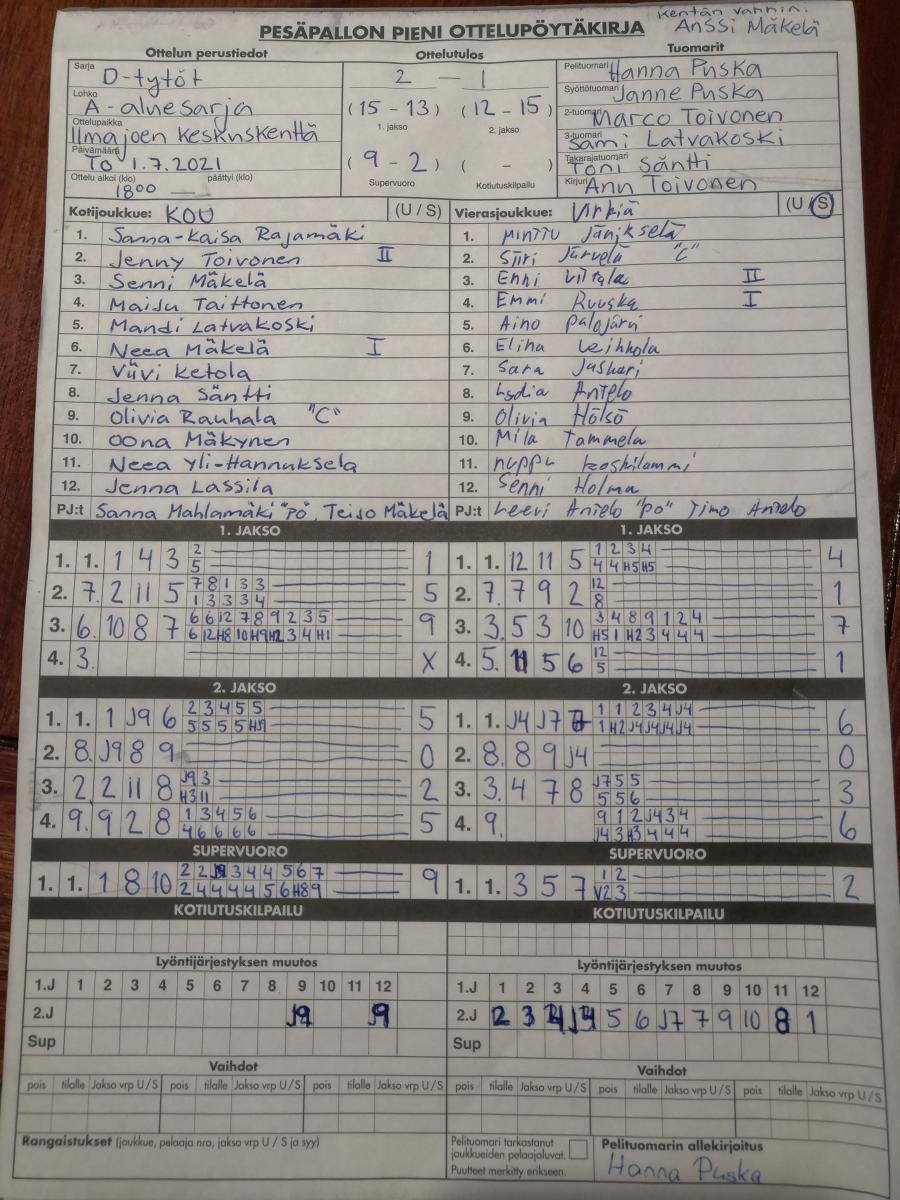 Kentän vanhin:
PESÄPALLON PIENI OTTELUPÖYTÄKIRJA Anssi Mäkelä
Ottelun perustiedot
Sarja D-tytöt
Lohko A-aluesarja
Ottelupaikka Ilmajoen keskuskenttä
Päivämäärä To 1.7.2021
Ottelu alkoi (klo) päättyi (klo)
1800
Ottelutulos
2 — 1
(15 - 13) (12 - 15)
1. jakso 2. jakso
(9 - 2) ( - )
Supervuoro Kotiutuskilpailu
Tuomarit
Pelituomari Hanna Puska
Syöttötuomari Janne Puska
2-tuomari Marco Toivonen
3-tuomari Sami Latvakoski
Takarajatuomari Toni Säntti
Kirjuri Anu Toivonen
Kotijoukkue: KOU (U / S)
1. Sanna-Kaisa Rajamäki
2. Jenny Toivonen II
3. Senni Mäkelä
4. Maiju Taittonen
5. Mandi Latvakoski
6. Neea Mäkelä I
7. Viivi Ketola
8. Jenna Säntti
9. Olivia Rauhala "C"
10. Oona Mäkynen
11. Neea Yli-Hannuksela
12. Jenna Lassila
PJ:t Sanna Mahlamäki "PÖ", Teijo Mäkelä
Vierasjoukkue: Virkiä (U / S)
1. Minttu
2. Siiri Järvelä "C"
3. Enni Viitala II
4. Emmi Ruuska I
5. Aino Palojärvi
6. Elina Leikkola
7. Sara Jaskari
8. Lydia Antelo
9. Olivia Hölsö
10. Mila Tammela
11. Nuppu Koskilammi
12. Senni Holma
PJ:t Leevi Antelo "po" Timo Antelo
1. JAKSO
1. 1. 1 4 3 2 1
5
2. 7. 2 11 5 7 8 1 3 3 5
1 3 3 3 4
3. 6. 10 8 7 6 6 12 7 8 9 2 3 5 9
6 12 H8 10 H9 H12 3 4 H1
4. 3. X
1. JAKSO
1. 1. 12 11 5 1 2 3 4 4
4 4 H5 H5
2. 7. 7 9 2 12 1
8
3. 3. 5 3 10 3 4 8 9 1 2 4 7
H5 1 H2 3 4 4 4
4. 5. 11 5 6 12 1
5
2. JAKSO
1. 1. 1 J9 6 2 3 4 5 5 5
5 5 5 5 HJ9
2. 8. J9 8 9 0
3. 2. 2 11 8 J9 3 2
H3 11
4. 9. 9 2 8 1 3 4 5 6 5
4 6 6 6 6
2. JAKSO
1. 1. J4 J7 1 1 2 3 4 J4 6
1 H2 J4 J4 J4 J4
2. 8. 8 9 J4 0
3. 3. 4 7 8 J7 5 5 3
5 5 6
4. 9. 9 1 2 J4 3 4 6
J4 3 H3 4 4 4
SUPERVUORO
1. 1. 1 8 10 2 2 3 4 4 5 6 7 9
2 4 4 4 4 5 6 H8 9
SUPERVUORO
1. 1. 3 5 7 1 2 2
V2 3
KOTIUTUSKILPAILU
KOTIUTUSKILPAILU
Lyöntijärjestyksen muutos
1.J 1 2 3 4 5 6 7 8 9 10 11 12
2.J J9 9
Sup
Lyöntijärjestyksen muutos
1.J 1 2 3 4 5 6 7 8 9 10 11 12
2.J 2 3 J4 5 6 J7 7 9 10 8 1
Sup
Vaihdot
pois tilalle Jakso vrp U / S pois tilalle Jakso vrp U / S pois tilalle Jakso vrp U / S
Vaihdot
pois tilalle Jakso vrp U / S pois tilalle Jakso vrp U / S pois tilalle Jakso vrp U / S
Rangaistukset (joukkue, pelaaja nro, jakso vrp U / S ja syy)
Pelituomari tarkastanut
joukkueiden pelaajaluvat.
Puutteet merkitty erikseen.
Pelituomarin allekirjoitus
Hanna Puska